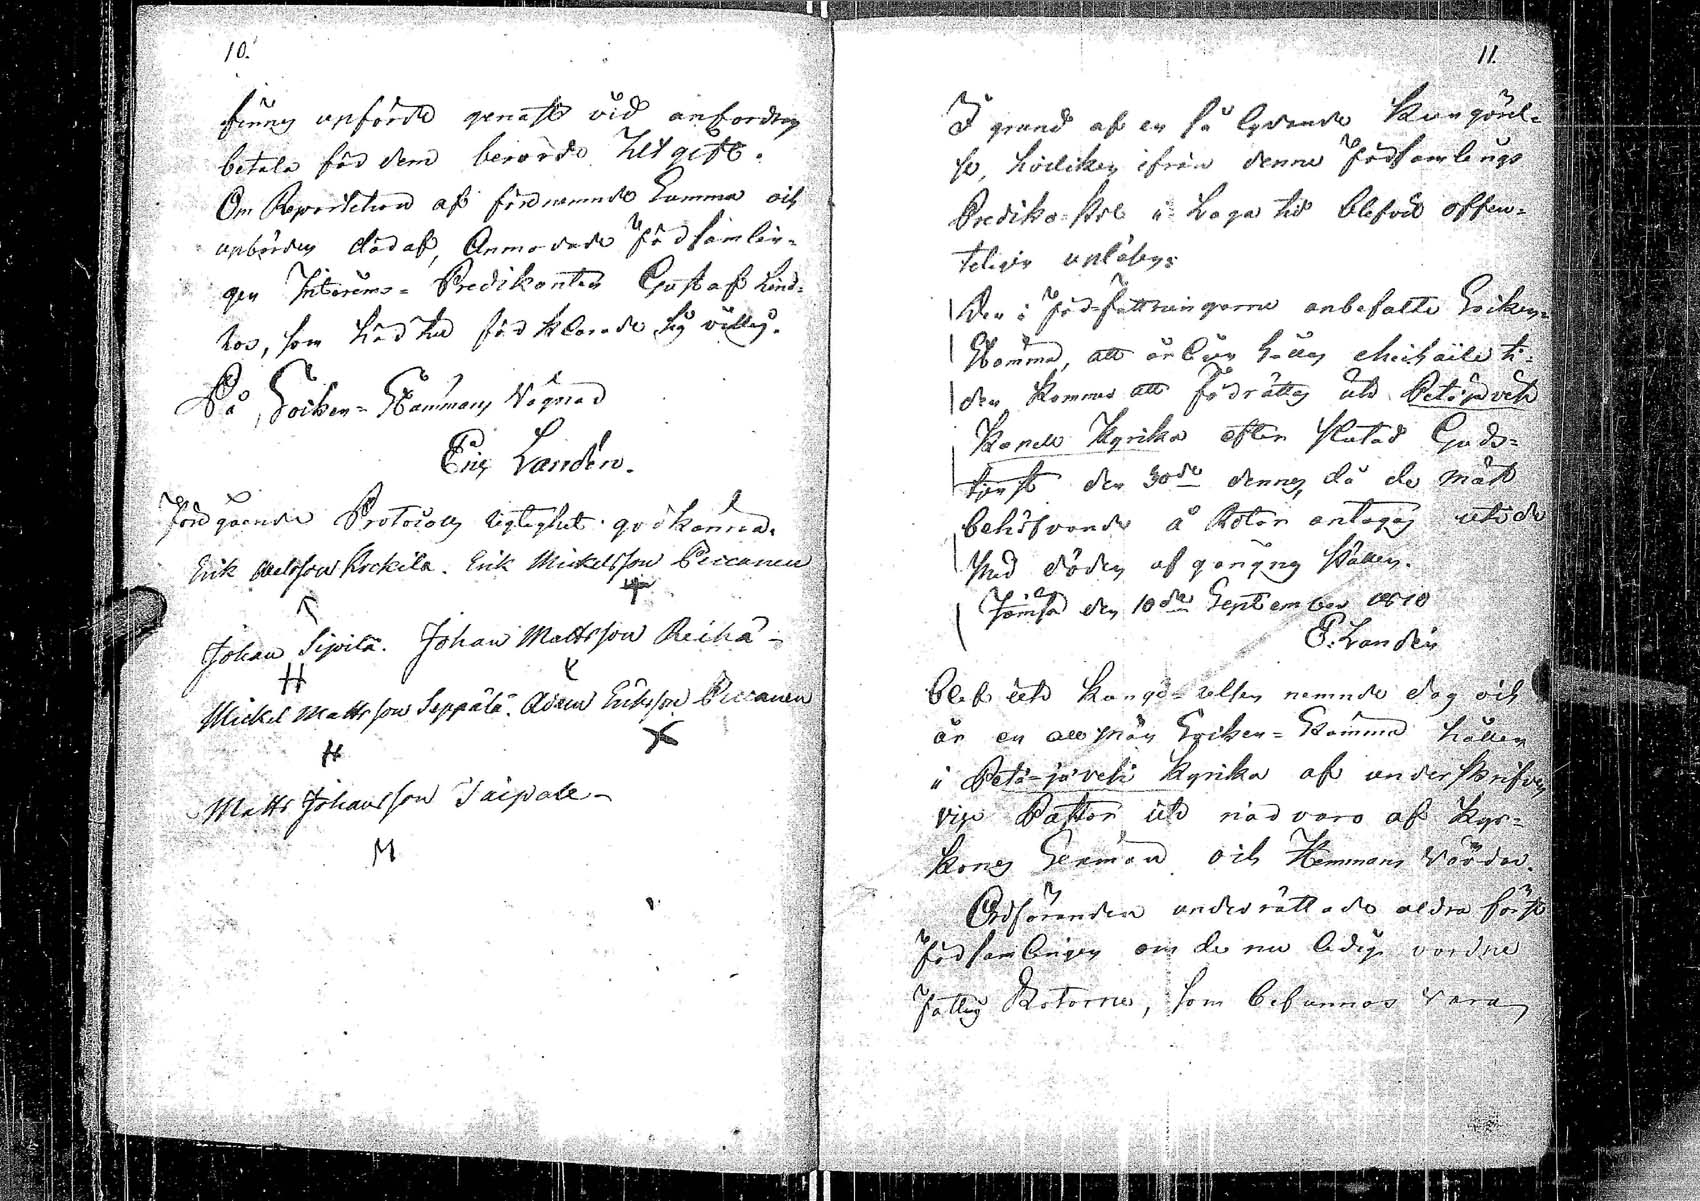 10.
finnes upförde genast vid anfordran
betala för dem berörde Utgift.
Om Repartition af förenemnde Summa och
upbörden däraf, Anmodade Församlin-
gen Interims-Predikanten Gustaf Lind-
ros, som härtil förklarade sig villig.
På Socken-Stämmans Vägnar
Eric Landén.
Föregående Protocolls rigtighet godkänna.
Erik Mattsson Kockila. Erik Mickelsson Piccanen
Johan Sipilä. Johan Mattsson Reihä-
Mickel Mattsson Seppälä. Adam Eriksson Piccanen
Matts Johansson Taipale-
M
11.
I grund af en så lydande Kungörel-
se, hvilken ifrån denne Församlings
Prediko-Stol i Laga tid blefvit offen-
teligen upläsen:
Den i Författningarne anbefalte Socken-
Stämma, att årligen hållas Michaili ti-
den kommer att förrättas uti Petäjävesi
Kapell Kyrka efter slutad Guds-
tjenst den 30de dennes, då de mäst
behöfvande å Rotar antagas uti de
med döden afgångnas ställen.
Jämsä den 10de September 1810
E. Landén
blef uti kungörelsen nemnde dag och
år en allmän Socken-Stämma hållen
i Petäjävesi Kyrka af underskrifven
vice Pastor uti närvaro af Kyr-
kones Sexmän och Hemmans Värdar.
Ordföranden underrättade aldra först
Församlingen om de nu ledige vordne
Fattig Rotorne, som befunnos vara